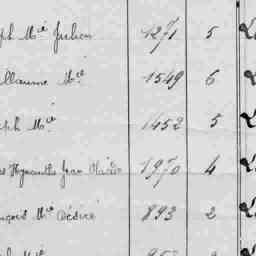 ph Mie Julien 1271 5
illaume Mie 1549 6
ph Mie 1452 5
Hyacinthe Jean Marie 1970 4
nçois Mie Désiré 893 2